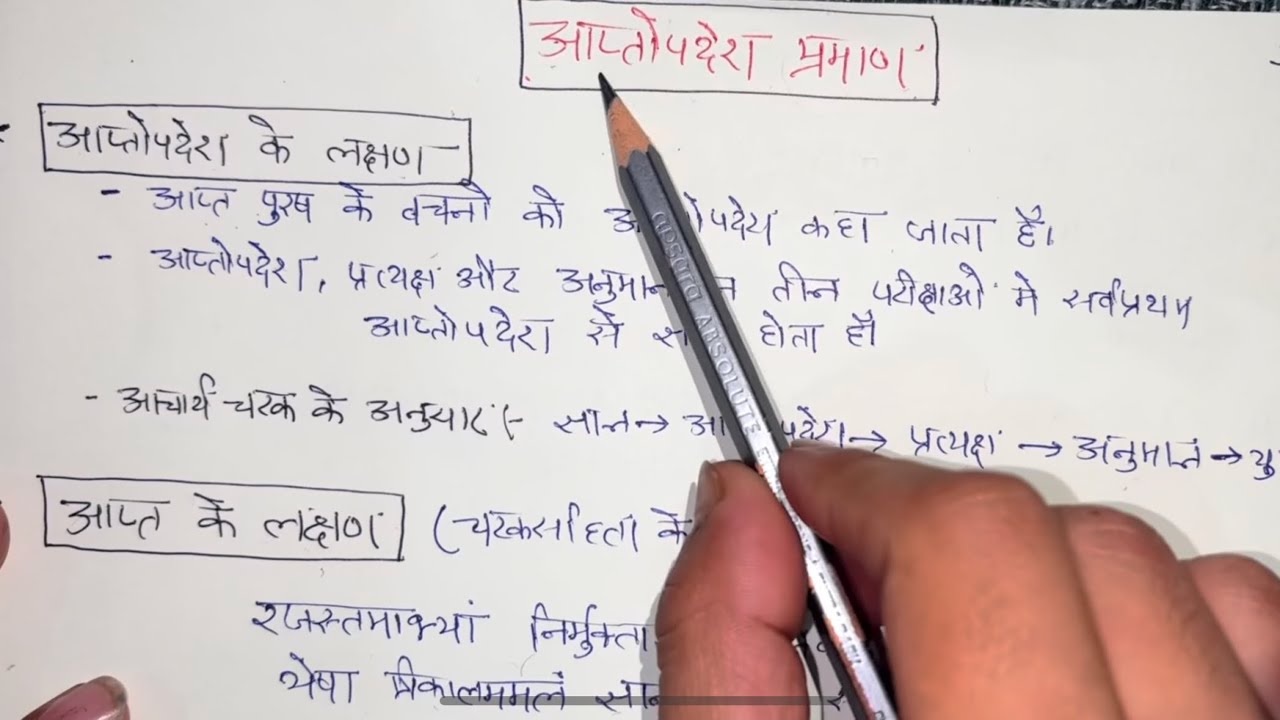 आप्तोपदेश प्रमाण
आप्तोपदेश के लक्षण
- आप्त पुरुष के वचनो को कहा जाता है।
- आप्तोपदेश, प्रत्यक्ष और अनुमान तीन परीक्षाओं मे सर्वप्रथम
आप्तोपदेश से होता है
- आचार्य चरक के अनुसार :- ज्ञान → → प्रत्यक्ष → अनुमान →
आप्त के लक्षण (चरकसंहिता के
रजस्तमाभ्यां निर्मुक्ता
येषा त्रिकालममलं
apsara ABSOLUTE